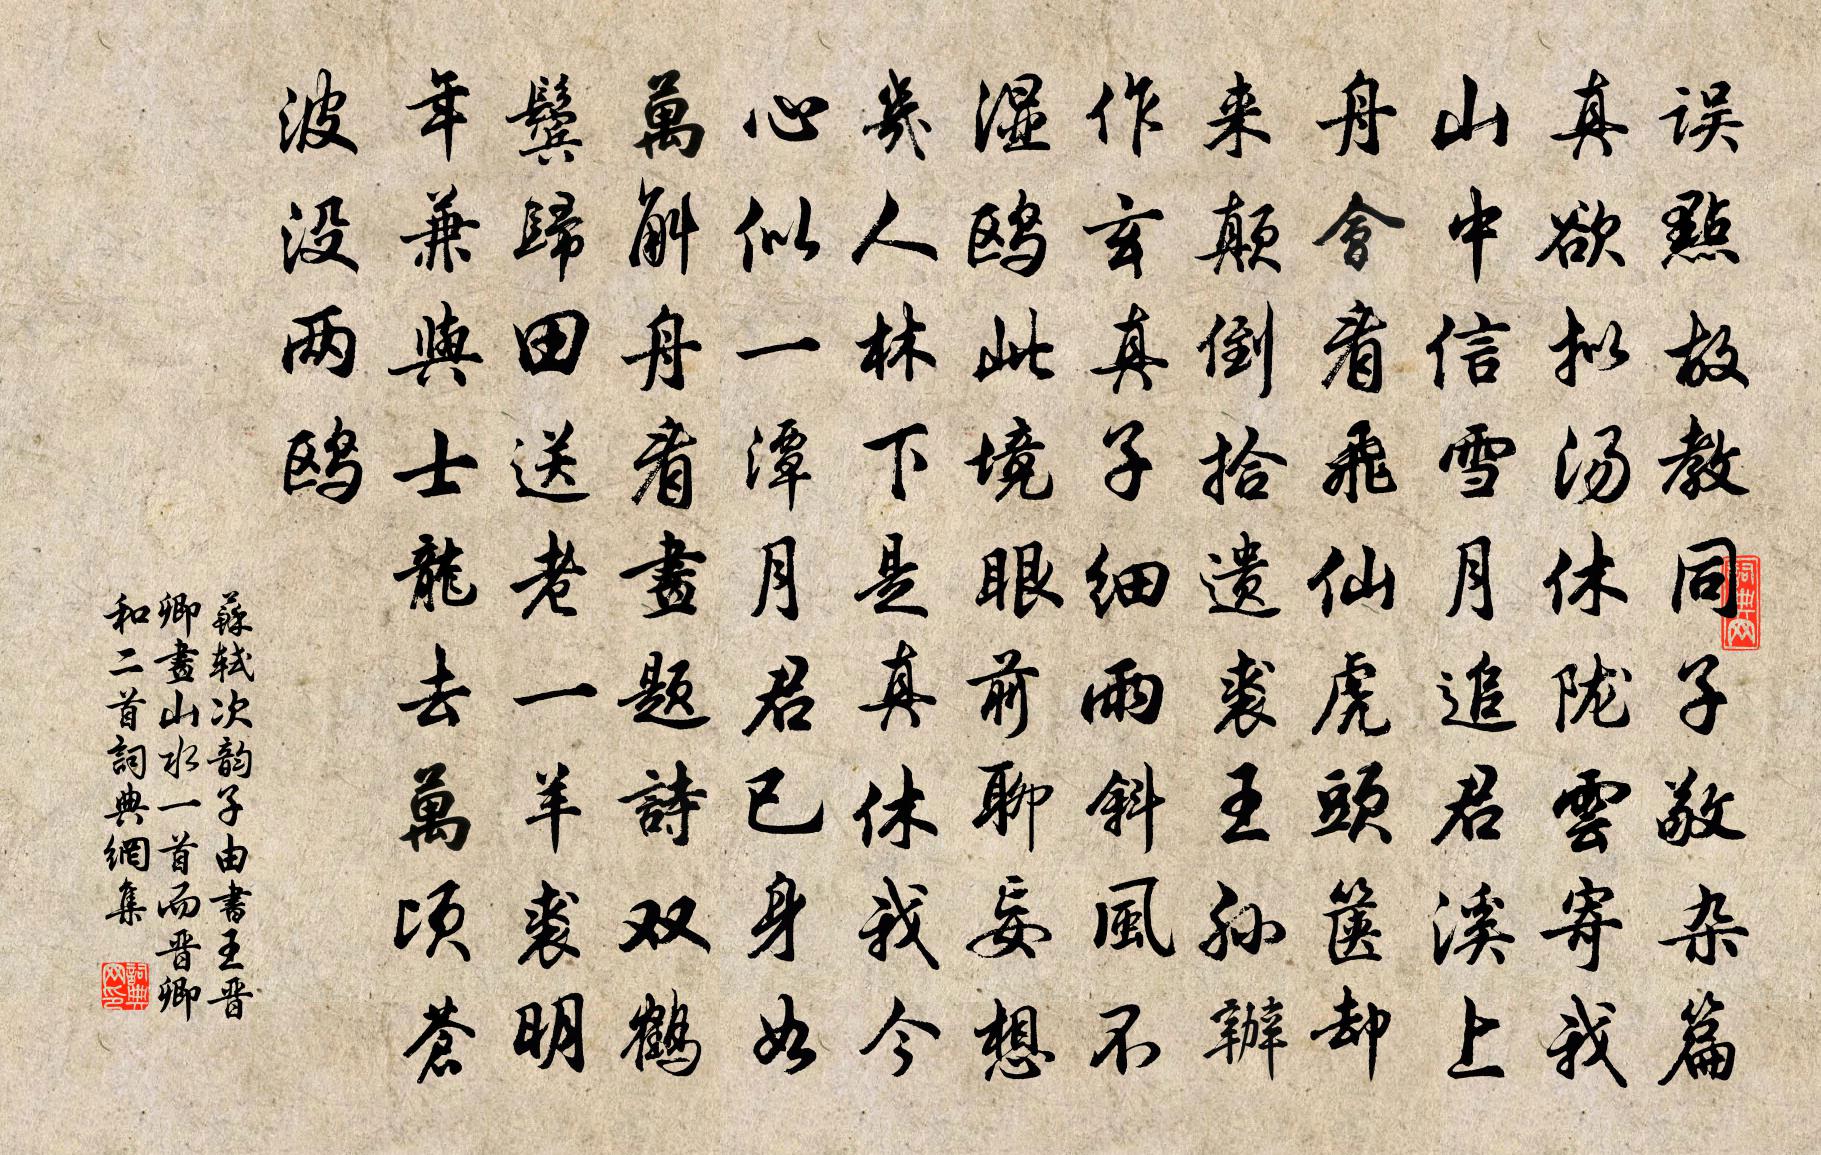 误點故教同子敬杂篇
真欲拟汤休陇雲寄我
山中信雪月追君溪上
舟會看飛仙虎頭篋却
来颠倒拾遗裘王孙辦
作玄真子细雨斜風不
湿鸥此境眼前聊妄想
幾人林下是真休我今
心似一潭月君已身如
萬斛舟看畫题詩双鹤
鬓歸田送老一羊裘明
年兼與士龍去萬顷蒼
波没两鸥
蘇轼次韵子由書王晋
卿畫山水一首而晋卿
和二首詞典網集
詞典网
詞典网印